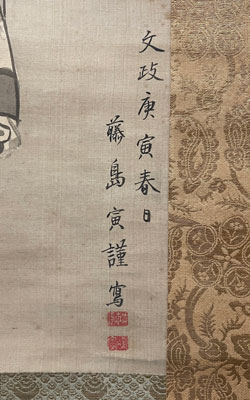 文政庚寅春日
藤島寅謹寫